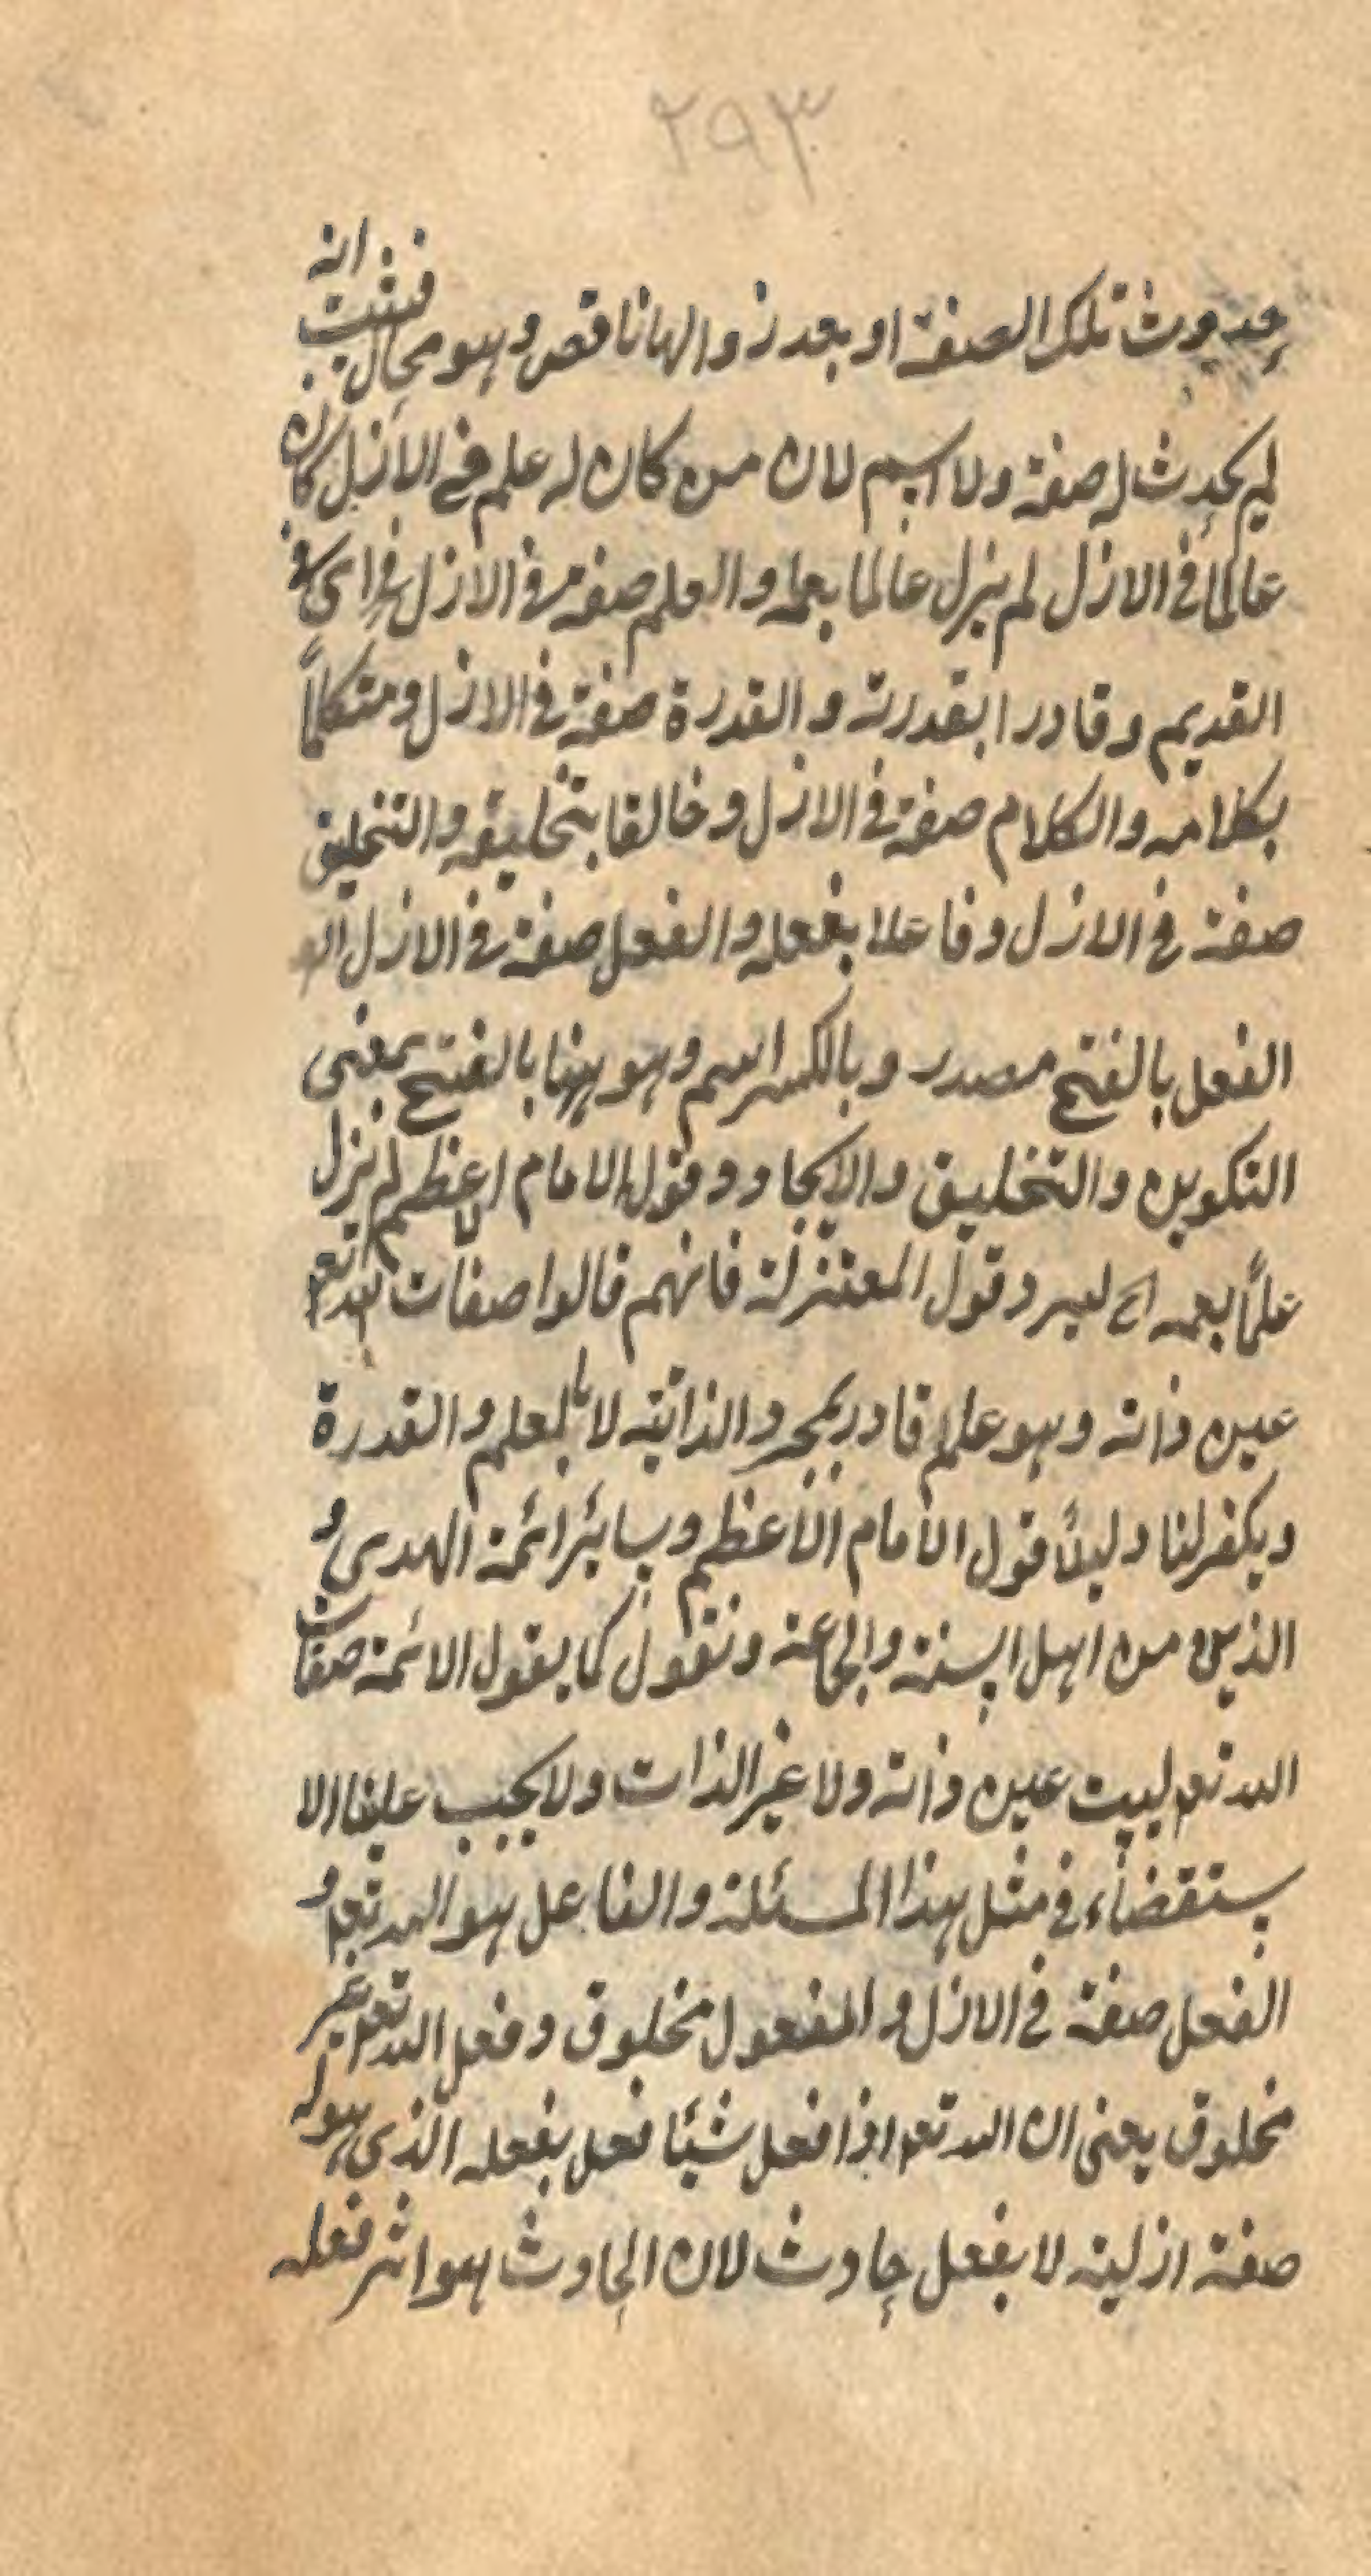 ٢٩٣
حدوث تلك الصفة او بعد زوالها ناقص وهو محال فثبت انه
لم يحدث له صفة ولا اسم لان من كان له علم في الازل كان
عالما في الازل لم يزل عالما بعلمه والعلم صفة في الازل اى في
القديم وقادرا بقدرته والقدرة صفة في الازل ومتكلماً
بكلامه والكلام صفة في الازل وخالقا بتخليقه والتخليق
صفة في الازل وفاعلا بفعله والفعل صفة في الازل
الفعل بالفتح مصدر وبالكسر اسم وهو ههنا بالفتح بمعنى
التكوين والتخليق والايجاد وقول الامام الاعظم لم يزل
علمًا بعلمه اى ليرد قول المعتزلة فانهم قالوا صفات الله تعم
عين ذاته وهو علم قادر بمجرد الذاتيه لا بالعلم والقدرة
ويكفر لنا دليلاً قول الامام الاعظم وسائر ائمة الهدى و
الذين من اهل السنة والجماعة ونقول كما يقول الائمة صفات
الله تعم ليست عين ذاته ولا غير الذات ولا يجب علينا الا
ستقضاء في مثل هذا المسئلة والفاعل هو الله تعم و
الفعل صفة في الازل والمفعول مخلوق وفعل الله تعم غير
مخلوق يعنى ان الله تعم اذا فعل شيئا فعل بفعله الذى هو له
صفة ازلية لا بفعل حادث لان الحادث هو اثر فعله